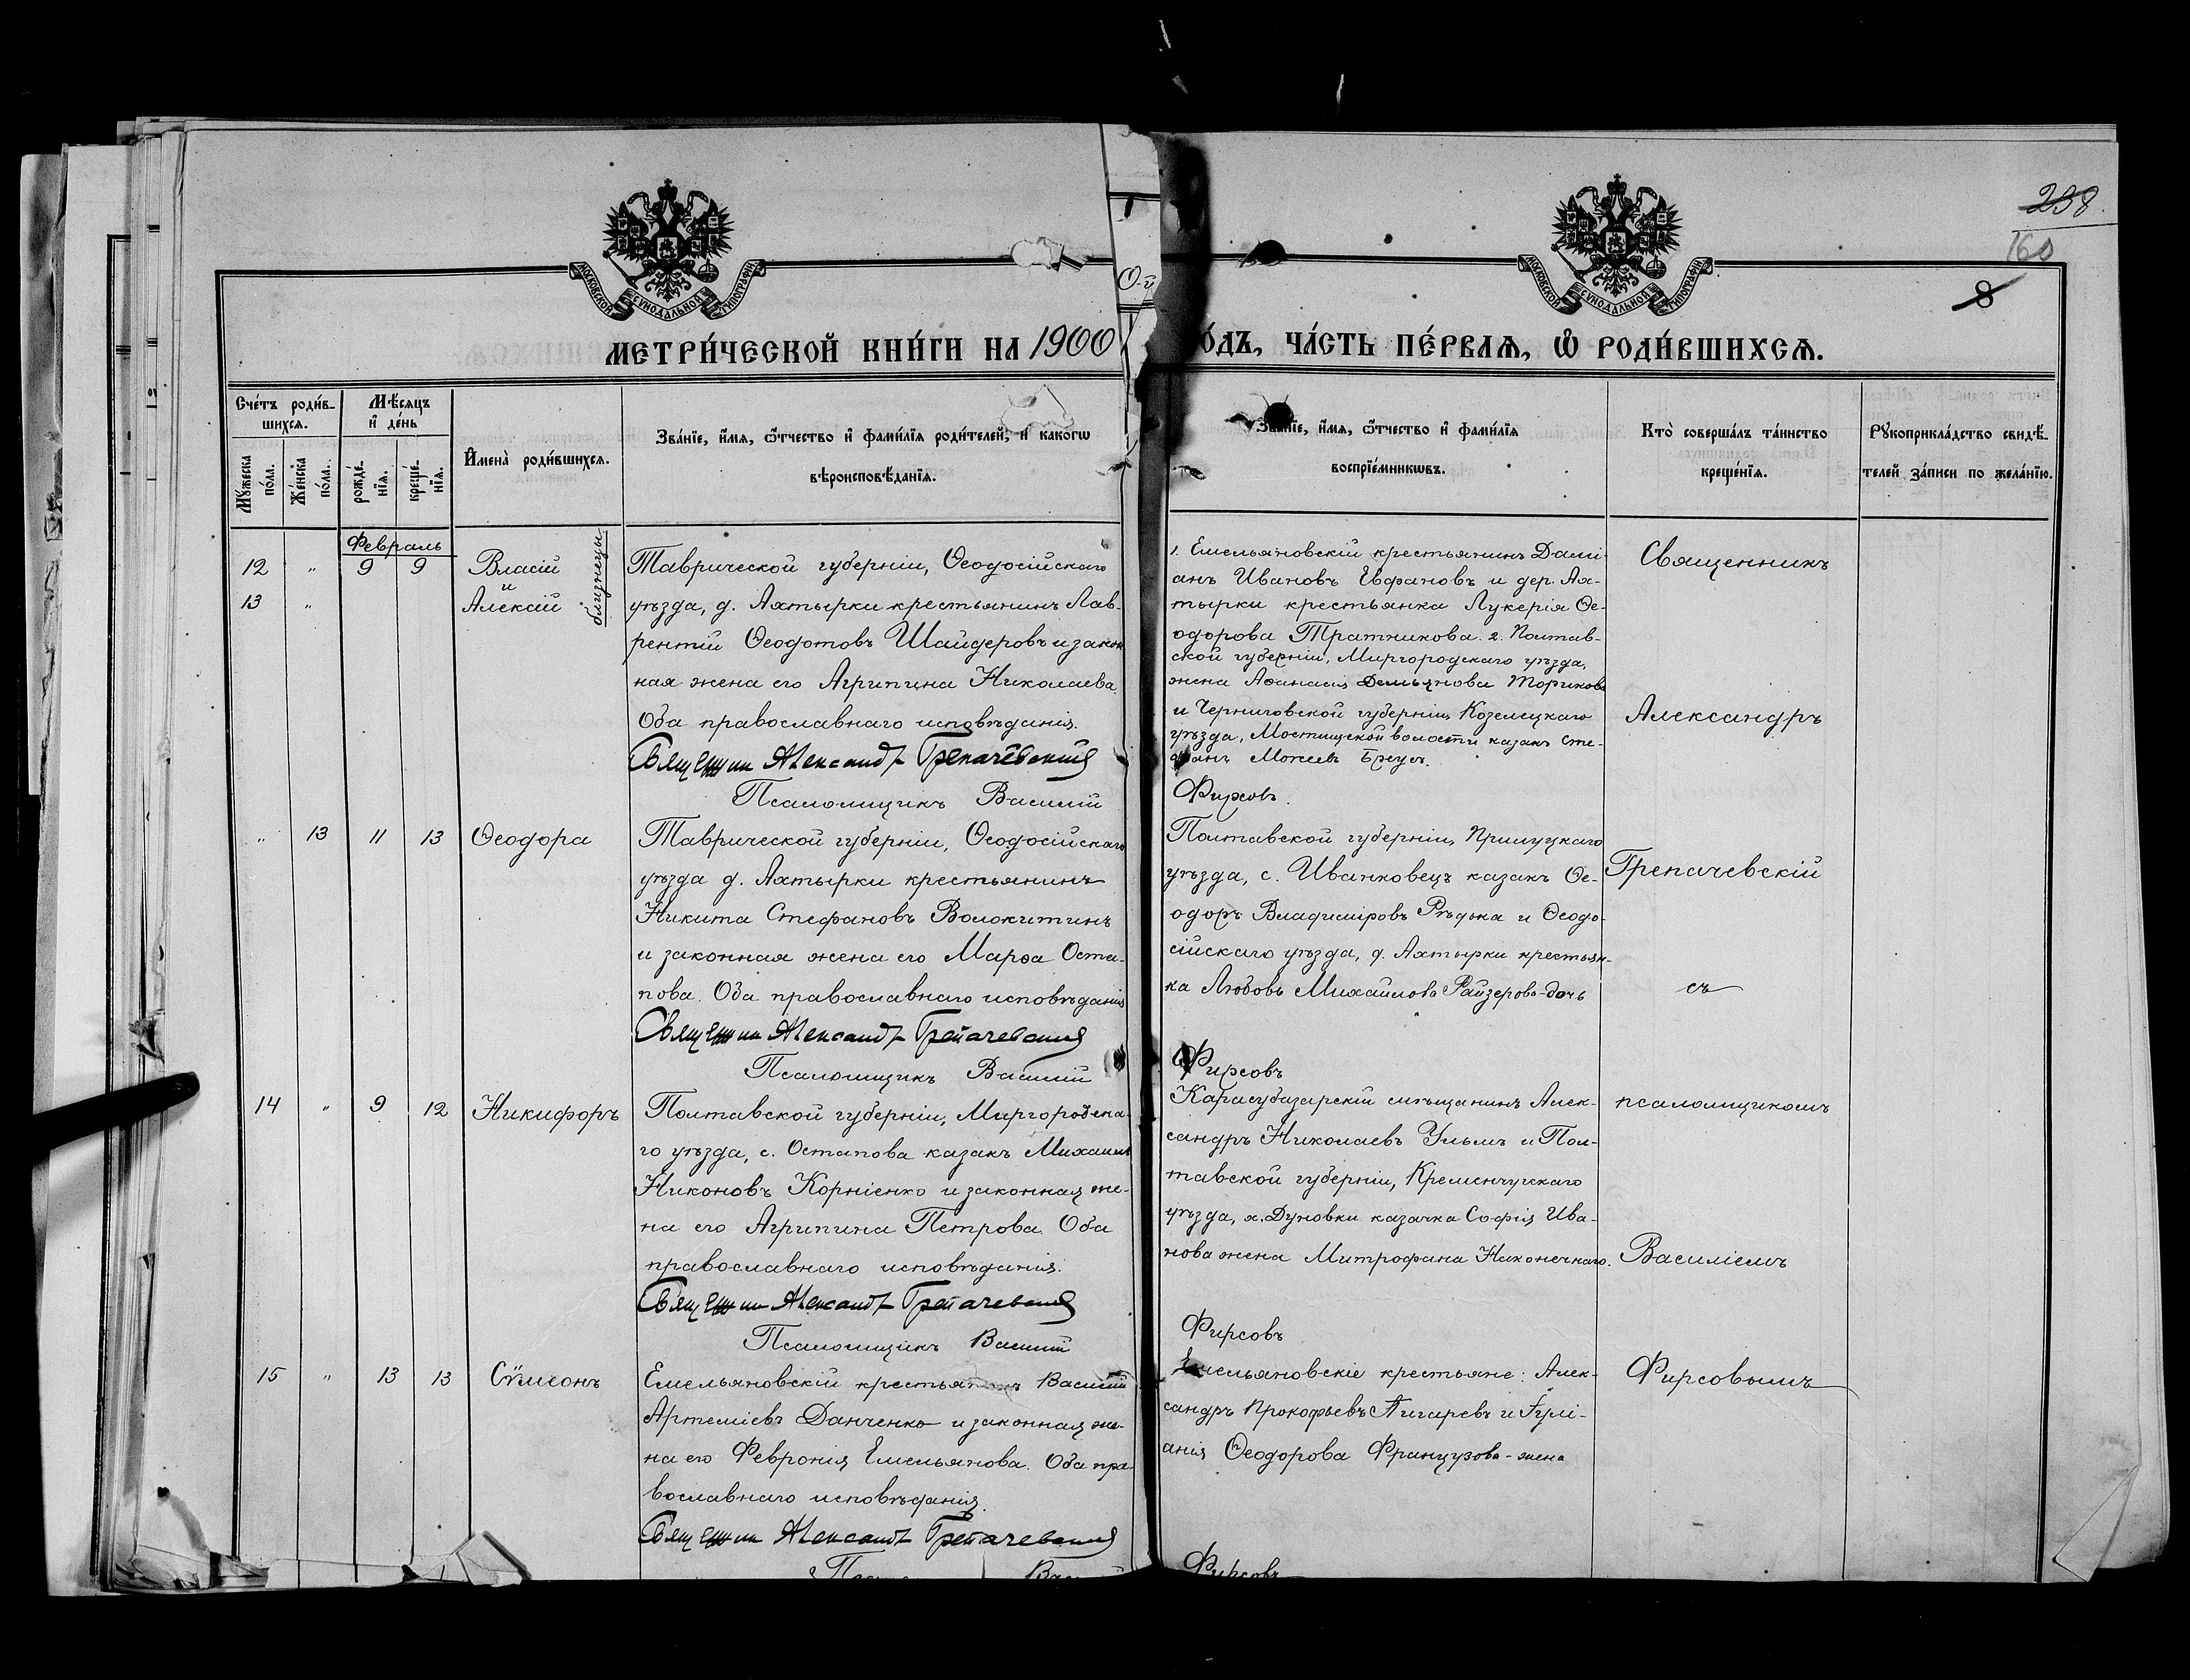 238.
160
8
МОСКОВСКОЙ СУНОДАЛЬНОЙ ТИПОГРАФІИ
МОСКОВСКОЙ СУНОДАЛЬНОЙ ТИПОГРАФІИ
О-й
МЕТРИ́ЧЕСКОЙ КНИ́ГИ НА 1900 О́ДЪ, ЧА́СТЬ ПЕ́РВАѦ, Ѡ РОДИ́ВШИХСѦ.
Сче́тъ роди́в-
шихсѧ.
Мѣ́сѧцъ
и҆ де́нь
Мꙋ́жеска
по́ла.
Же́нска
по́ла.
рожде́-
нїѧ.
креще́-
нїѧ.
И҆мена̀ роди́вшихсѧ.
Зва́нїе, и҆́мѧ, ѻ҆́тчество и҆ фами́лїѧ роди́телей, и҆ како́гѡ
вѣроисповѣ́данїѧ.
Зва́нїе, и҆́мѧ, ѻ҆́тчество и҆ фами́лїѧ
воспрїе́мникѡвъ.
Кто̀ соверша́лъ та́инство
креще́нїѧ.
Рꙋкоприкла́дство свидѣ́-
телей за́писи по жела́нїю.
Февраль
12 " 9 9 Власій
и
13 " Алексій
близнецы
Таврической губерніи, Ѳеодосійскаго
уѣзда, д. Ахтырки крестьянинъ Лав-
рентій Ѳеодотовъ Шайдеровъ и закон
ная жена его Агрипина Николаева.
Оба православнаго исповѣданія.
Священник Александр Грепачевский
Псаломщикъ Василій Фирсовъ.
1. Емельяновскій крестьянинъ Дамі-
анъ Ивановъ Евфановъ и дер. Ах-
тырки крестьянка Лукерія Ѳе-
одорова Тратникова. 2. Полтав-
ской губерніи, Миргородскаго уѣзда,
жена Аѳанасія Демьянова Торикова
и Черниговской губерніи, Козелецкаго
уѣзда, Мостищской волости казакъ Сте-
фанъ Моисеевъ
Священникъ
Александръ
Грепачевскій
съ
псаломщикомъ
Василіемъ
Фирсовымъ
" 13 11 13 Ѳеодора
Таврической губерніи, Ѳеодосійскаго
уѣзда д. Ахтырки крестьянинъ
Никита Стефановъ Волокитинъ
и законная жена его Марѳа Оста-
пова. Оба православнаго исповѣданія
Священник Александр Грепачевский
Псаломщикъ Василій Фирсовъ
Полтавской губерніи, Прилуцкаго
уѣзда, с. Иванковецъ казакъ Ѳе-
одоръ Владиміровъ Рѣдька и Ѳеодо-
сійскаго уѣзда, д. Ахтырки крестьян-
ка Любовь Михайлова Райзерова-дочь
14 " 9 12 Никифоръ
Полтавской губерніи, Миргородска-
го уѣзда, с. Остапова казакъ Михаилъ
Никоновъ Корніенко и законная же-
на его Агрипина Петрова. Оба
православнаго исповѣданія.
Священник Александр Грепачевский
Псаломщикъ Василій Фирсовъ
Карасубазарскій мѣщанинъ Алек-
сандръ Николаевъ Ульмъ и Пол-
тавской губерніи, Кременчугскаго
уѣзда, х. Дуновки казачка Софія Ива-
нова жена Митрофана Наконечнаго.
15 " 13 13 Сѷмеонъ
Емельяновскій крестьянинъ Василій
Артеміевъ Данченко и законная же-
на его Февронія Емельянова. Оба пра-
вославнаго исповѣданія.
Священник Александр Грепачевский
Фирсовъ
Емельяновскіе крестьяне: Алек-
сандръ Прокофьевъ Пигаревъ и Іулі-
анія Ѳеодорова Французова-жена